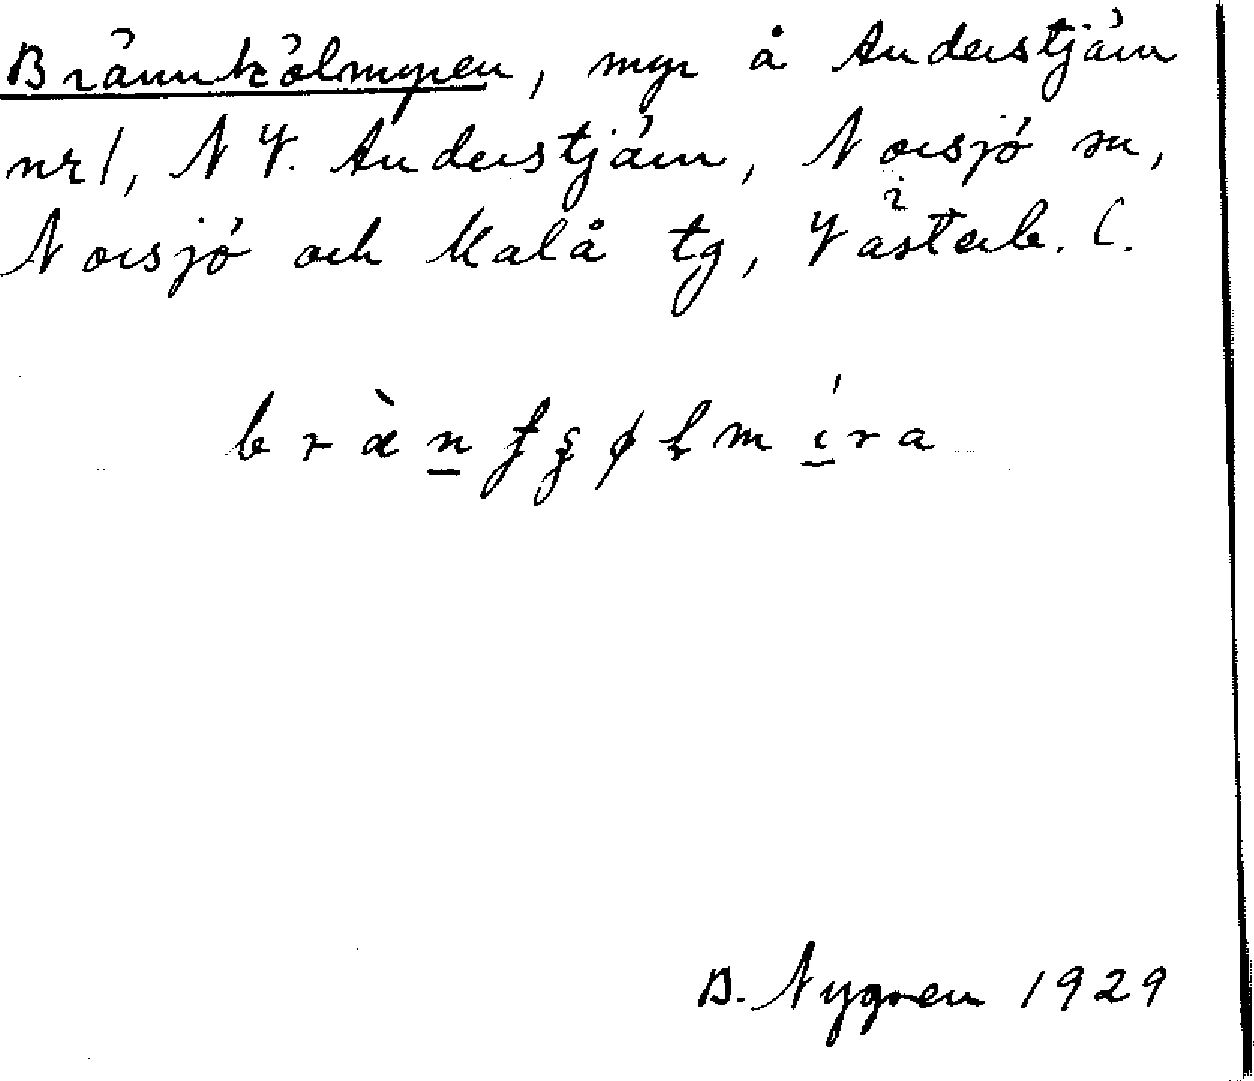 Brännkölmyren, myr å Anderstjärn
nr 1, NV. Anderstjärn, Norsjö sn,
Norsjö och Malå tg, Västerb. l.
B. Nygren 1929